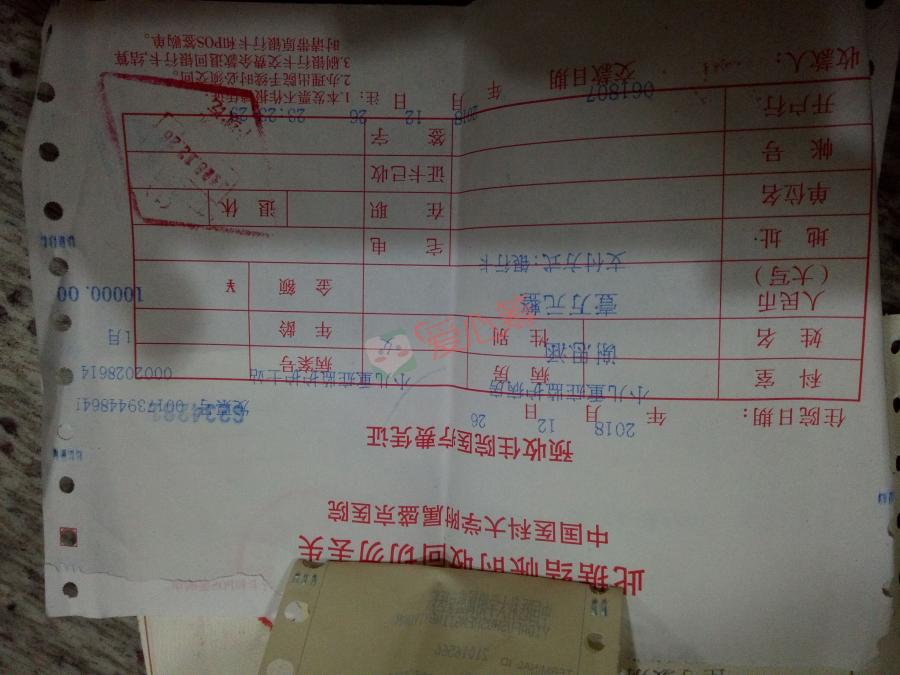 此据结帐时收回切勿丢失
中国医科大学附属盛京医院
预收住院医疗费凭证
发票号 0017394486
住院日期: 2018 年 12 月 26 日
科 室 小儿重症监护病房 病 房 小儿重症监护护士站 病案号 0002028614
姓 名 谢思涵 性 别 女 年 龄 1月
人民币(大写) 壹万元整 金 额 ¥ 10000.00
支付方式:银行卡
地 址 宅 电
单位名 在 职 退 休
帐 号 证卡已收
开户行 签 字
收款人: 061807 交款日期 2018 年 12 月 26 日
注:1.本发票不作报销凭证
2.办理出院手续时必须交回
3.刷银行卡交费余款退回银行卡,结算
时请带原银行卡和POS签购单。
爱心筹
TERMINAL ID